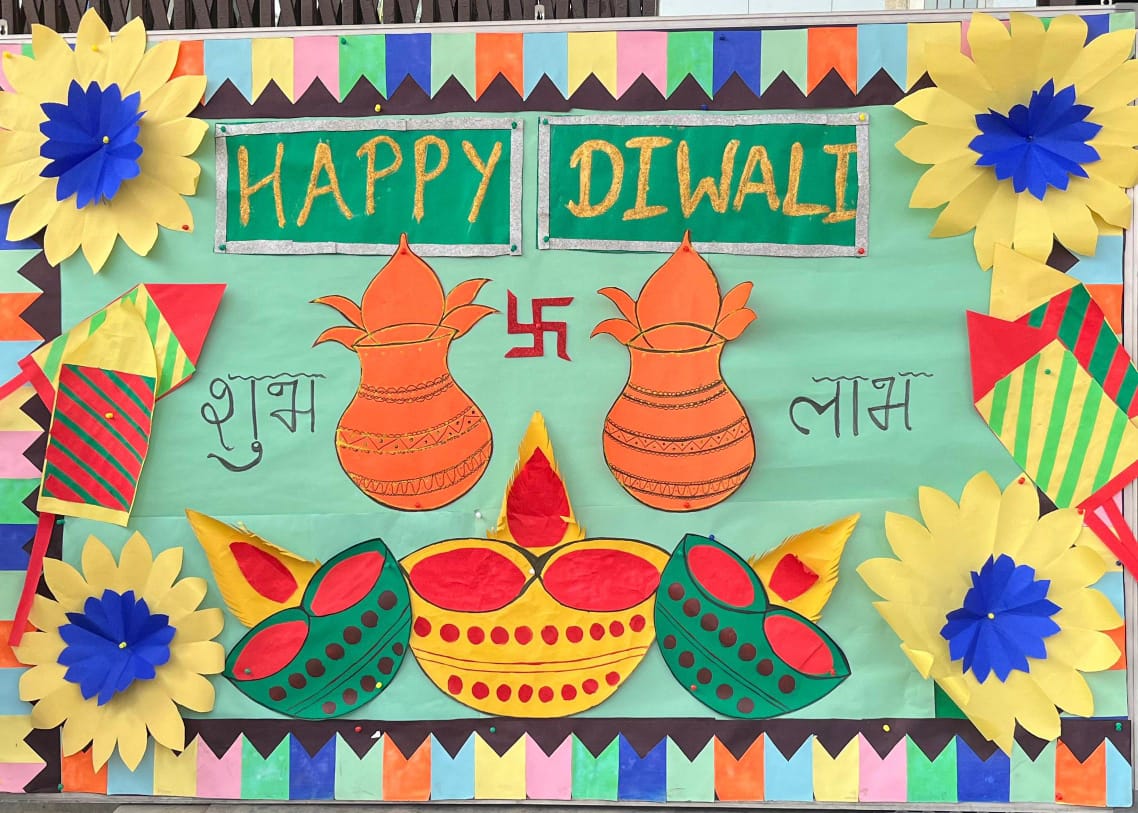 HAPPY DIWALI
शुभ लाभ